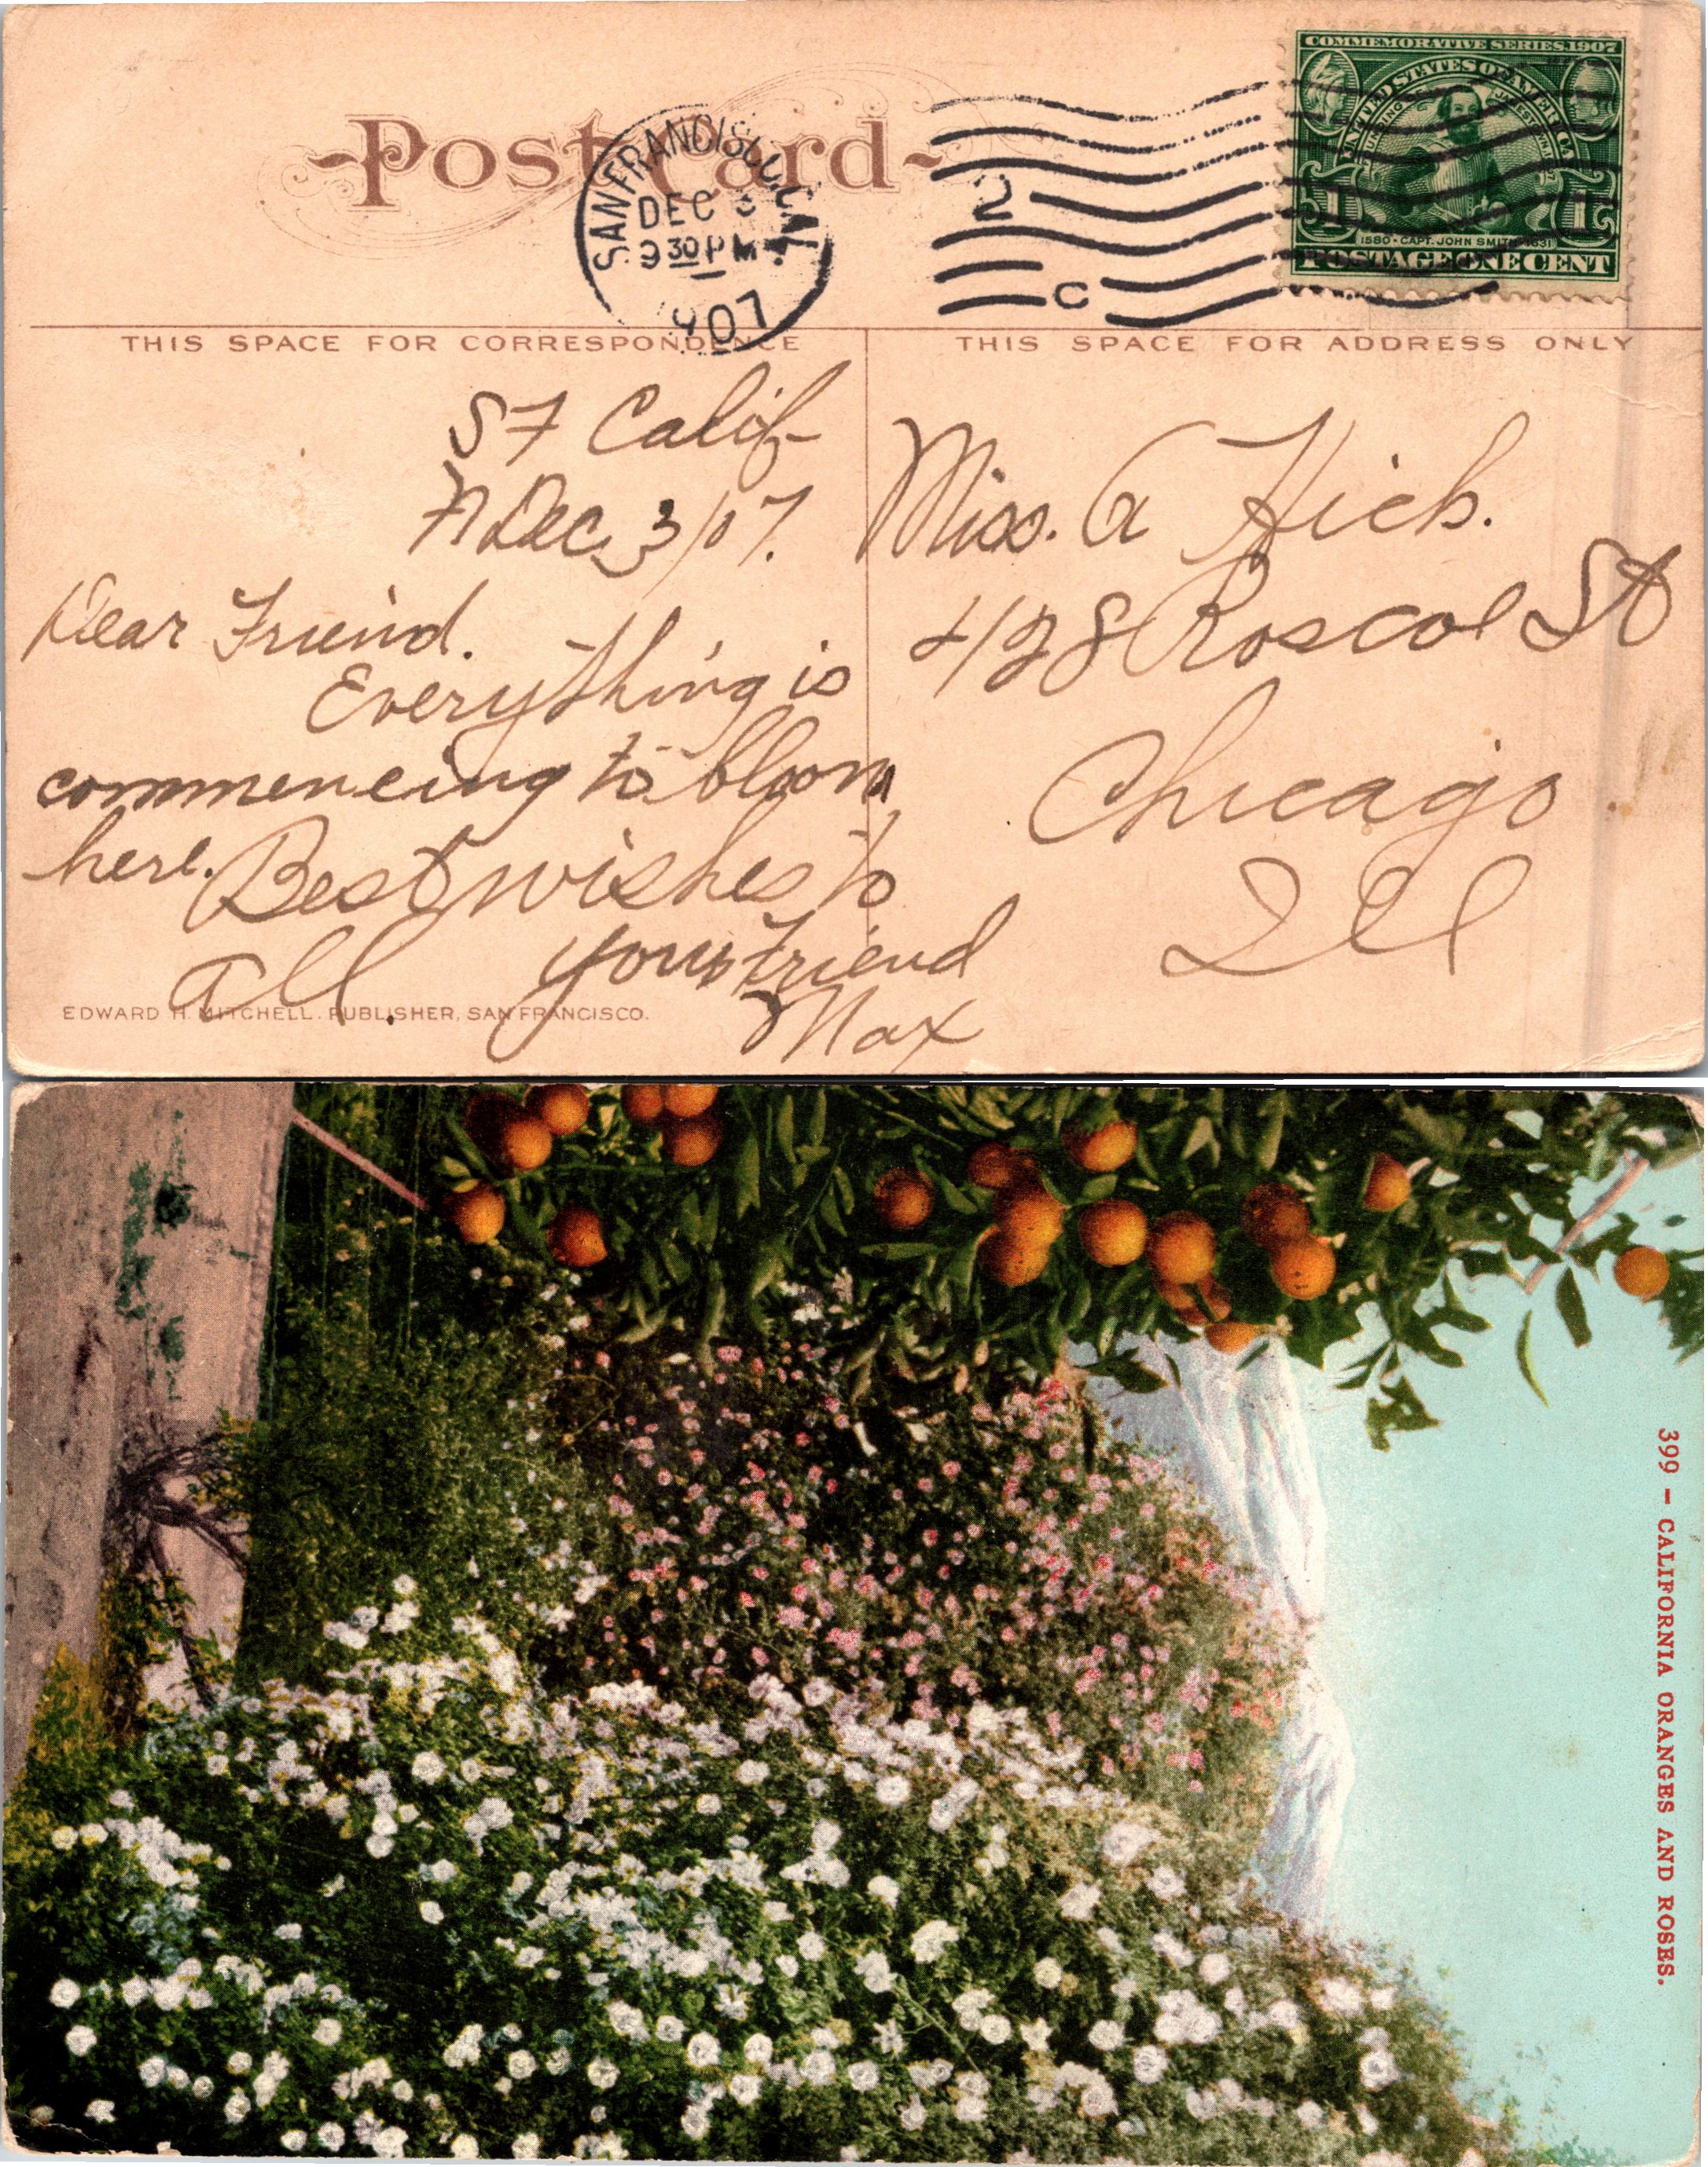 COMMEMORATIVE SERIES, 1907
UNITED STATES OF AMERICA
FOUNDING OF JAMESTOWN
1580 · CAPT. JOHN SMITH · 1631
POSTAGE ONE CENT
Post Card
SAN FRANCISCO, CAL.
DEC 3
9 30 PM
1907
2
C
THIS SPACE FOR CORRESPONDENCE
THIS SPACE FOR ADDRESS ONLY
S F Calif
Dec. 3/07.
Dear Friend.
Everything is
commencing to bloom
here. Best wishes to
all
your Friend
Max
Miss. A
428 Roscoe St
Chicago
Ill
EDWARD H. MITCHELL. PUBLISHER, SAN FRANCISCO.
399 - CALIFORNIA ORANGES AND ROSES.